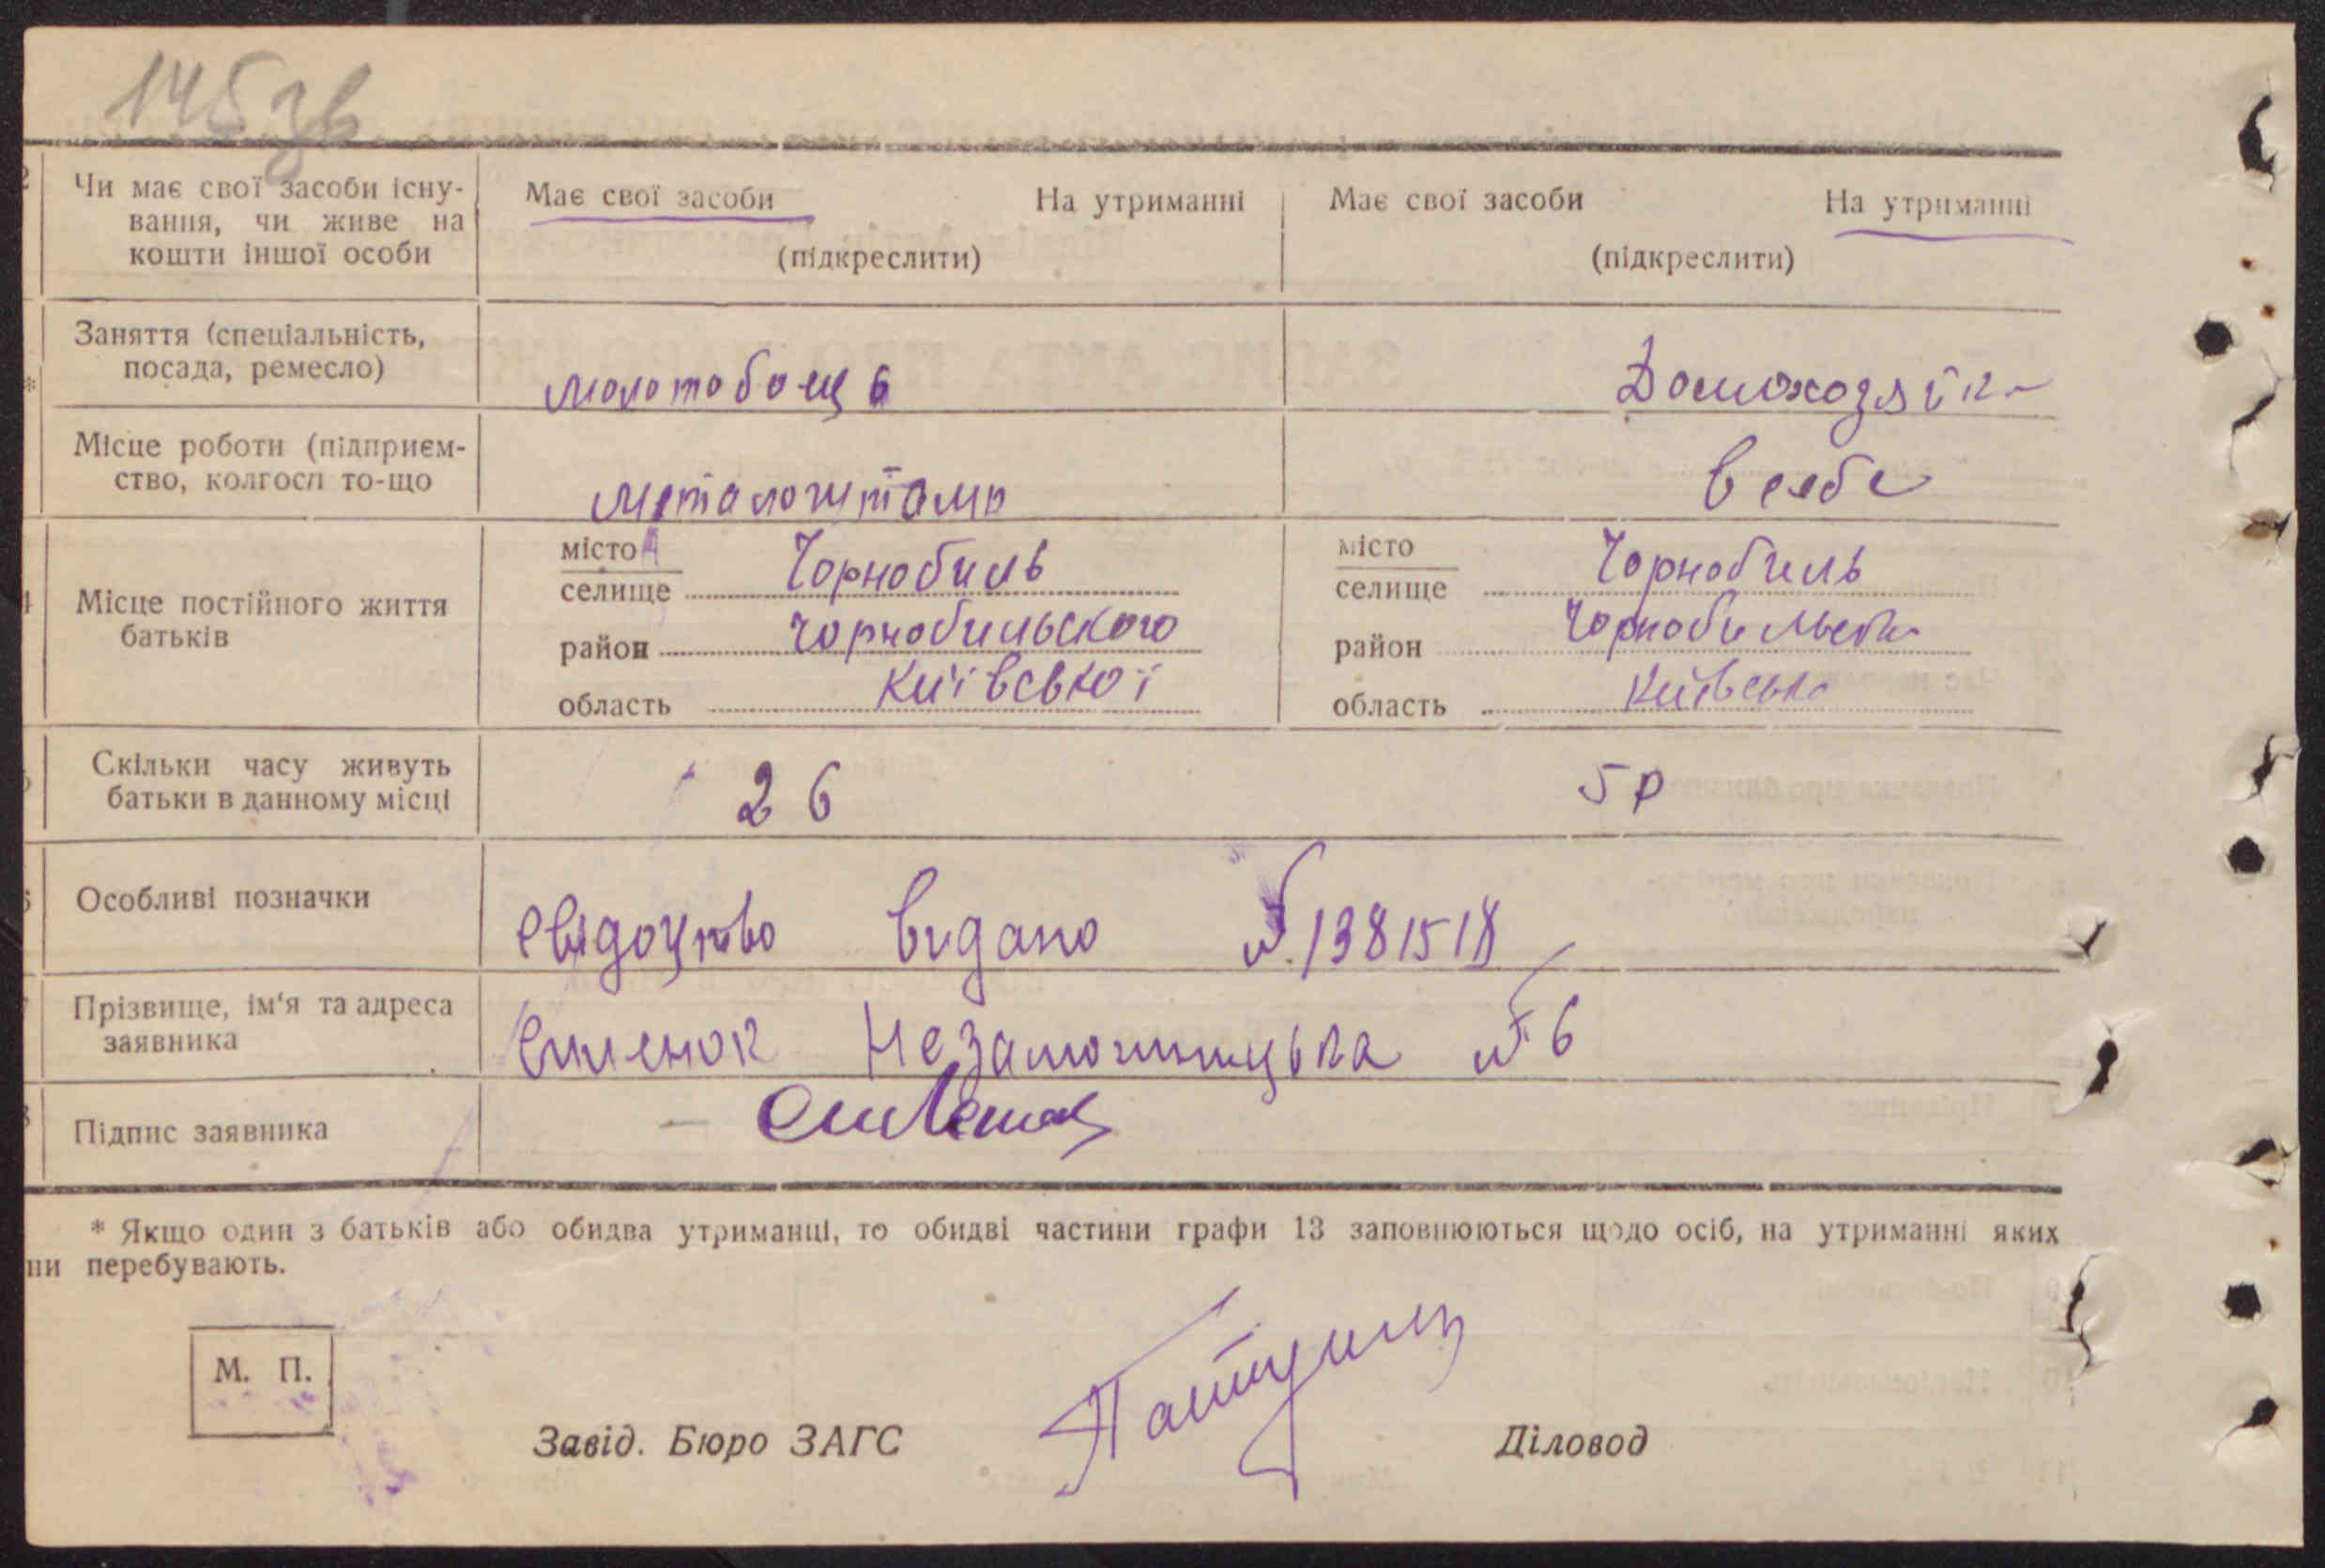 145зв
Чи має свої засоби існу-
вання, чи живе на
кошти іншої особи
Має свої засоби На утриманні Має свої засоби На утриманні
(підкреслити) (підкреслити)
Заняття (спеціальність,
посада, ремесло)
молотобоєць Домохозяйка
Місце роботи (підприєм-
ство, колгосп то-що
металоштамп в себе
Місце постійного життя
батьків
місто
селище Чорнобиль
район чорнобильського
область київської
місто
селище Чорнобиль
район Чорнобильськ
область Київська
Скільки часу живуть
батьки в данному місці
26 5 р
Особливі позначки
свідоцтво видано № 1381518
Прізвище, ім'я та адреса
заявника
Незаможницька № 6
Підпис заявника
* Якщо один з батьків або обидва утриманці, то обидві частини графи 13 заповнюються щодо осіб, на утриманні яких
ни перебувають.
М. П.
Завід. Бюро ЗАГС Діловод